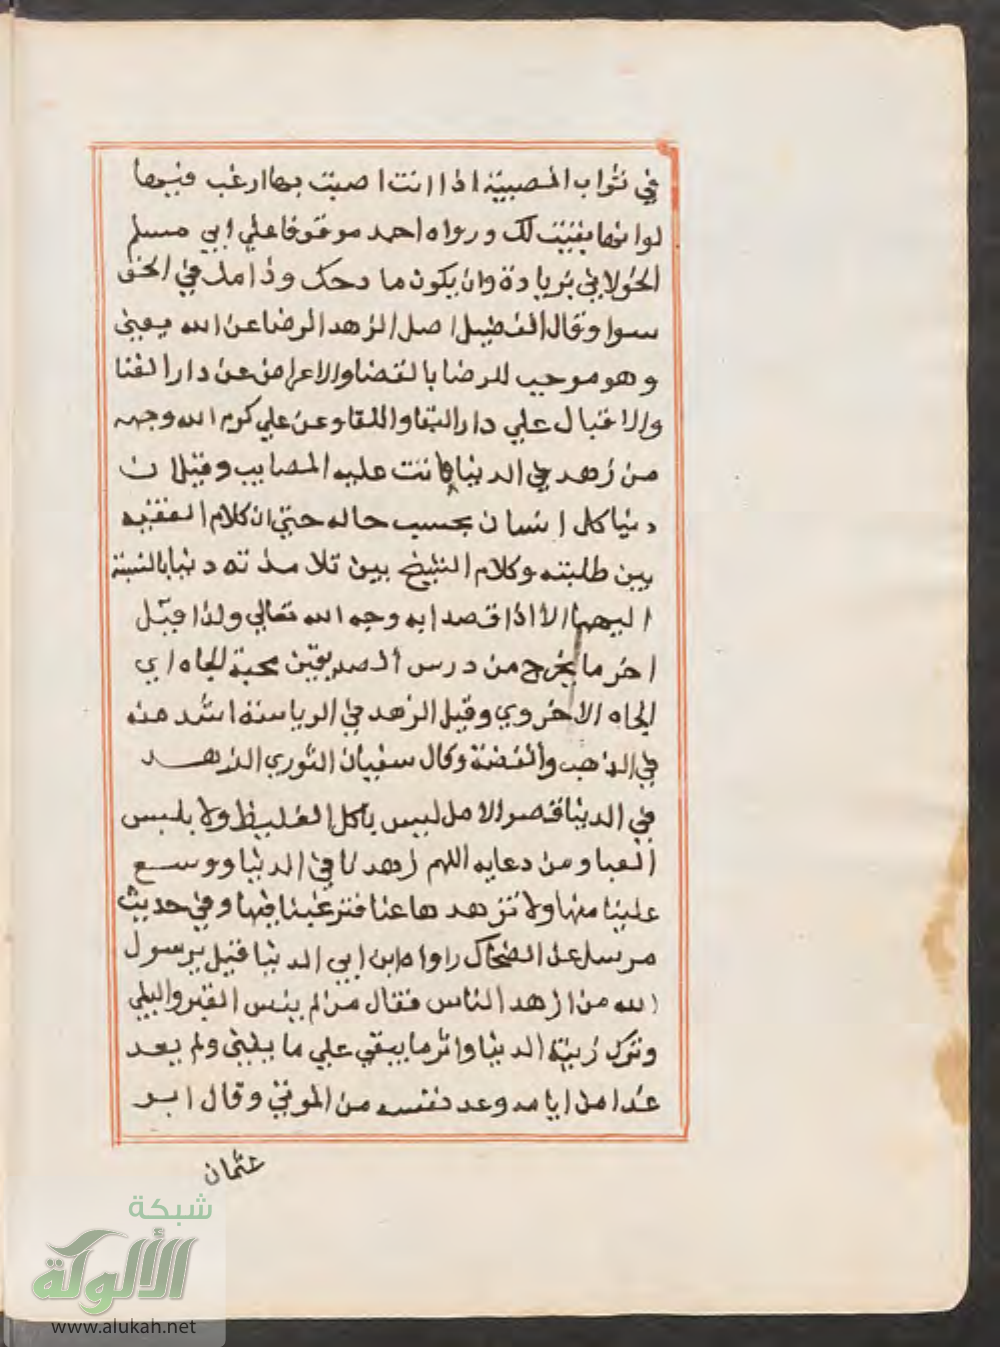 في ثواب المصيبة اذا انت اصبت بها ارغب فيها
لو انها بقيت لك ورواه احمد موقوفا علي ابي مسلم
الخولاني بزيادة وان يكون مادحك وذامك في الحق
سوا وقال الفضيل اصل الزهد الرضا عن الله يعني
وهو موجب للرضا بالقضا والاعراض عن دار الفنا
والاقبال علي دار البقا واللقا وعن علي كرم الله وجهه
من زهد في الدنيا هانت عليه المصايب وقيل ان
دنيا كل انسان بحسب حاله حتي ان كلام الفقيه
بين طلبته وكلام الشيخ بين تلامذته دنيا بالنسبة
اليهما الا اذا قصدا به وجه الله تعالي ولذا قيل
اخر ما يخرج من درس الصديقين محبة الجاه اي
الجاه الاخروي وقيل الزهد في الرياسة اشد منه
في الذهب والفضة وكال سفيان الثوري الزهد
في الدنيا قصر الامل ليس ياكل الغليظ ولا يلبس
العبا ومن دعايه اللهم زهدنا في الدنيا ووسع
علينا منها ولا تزهدها عنا فترغبنا فيها وفي حديث
مرسل عن الضحاك راواه ابن ابي الدنيا قيل يرسول
الله من ازهد الناس فقال من لم ينس القبر والبلي
وترك زينة الدنيا واثر ما يبقي علي ما يفني ولم يعد
غدا من ايامه وعد نفسه من الموتي وقال ابو
عثمان
شبكة
الألوكة
www.alukah.net